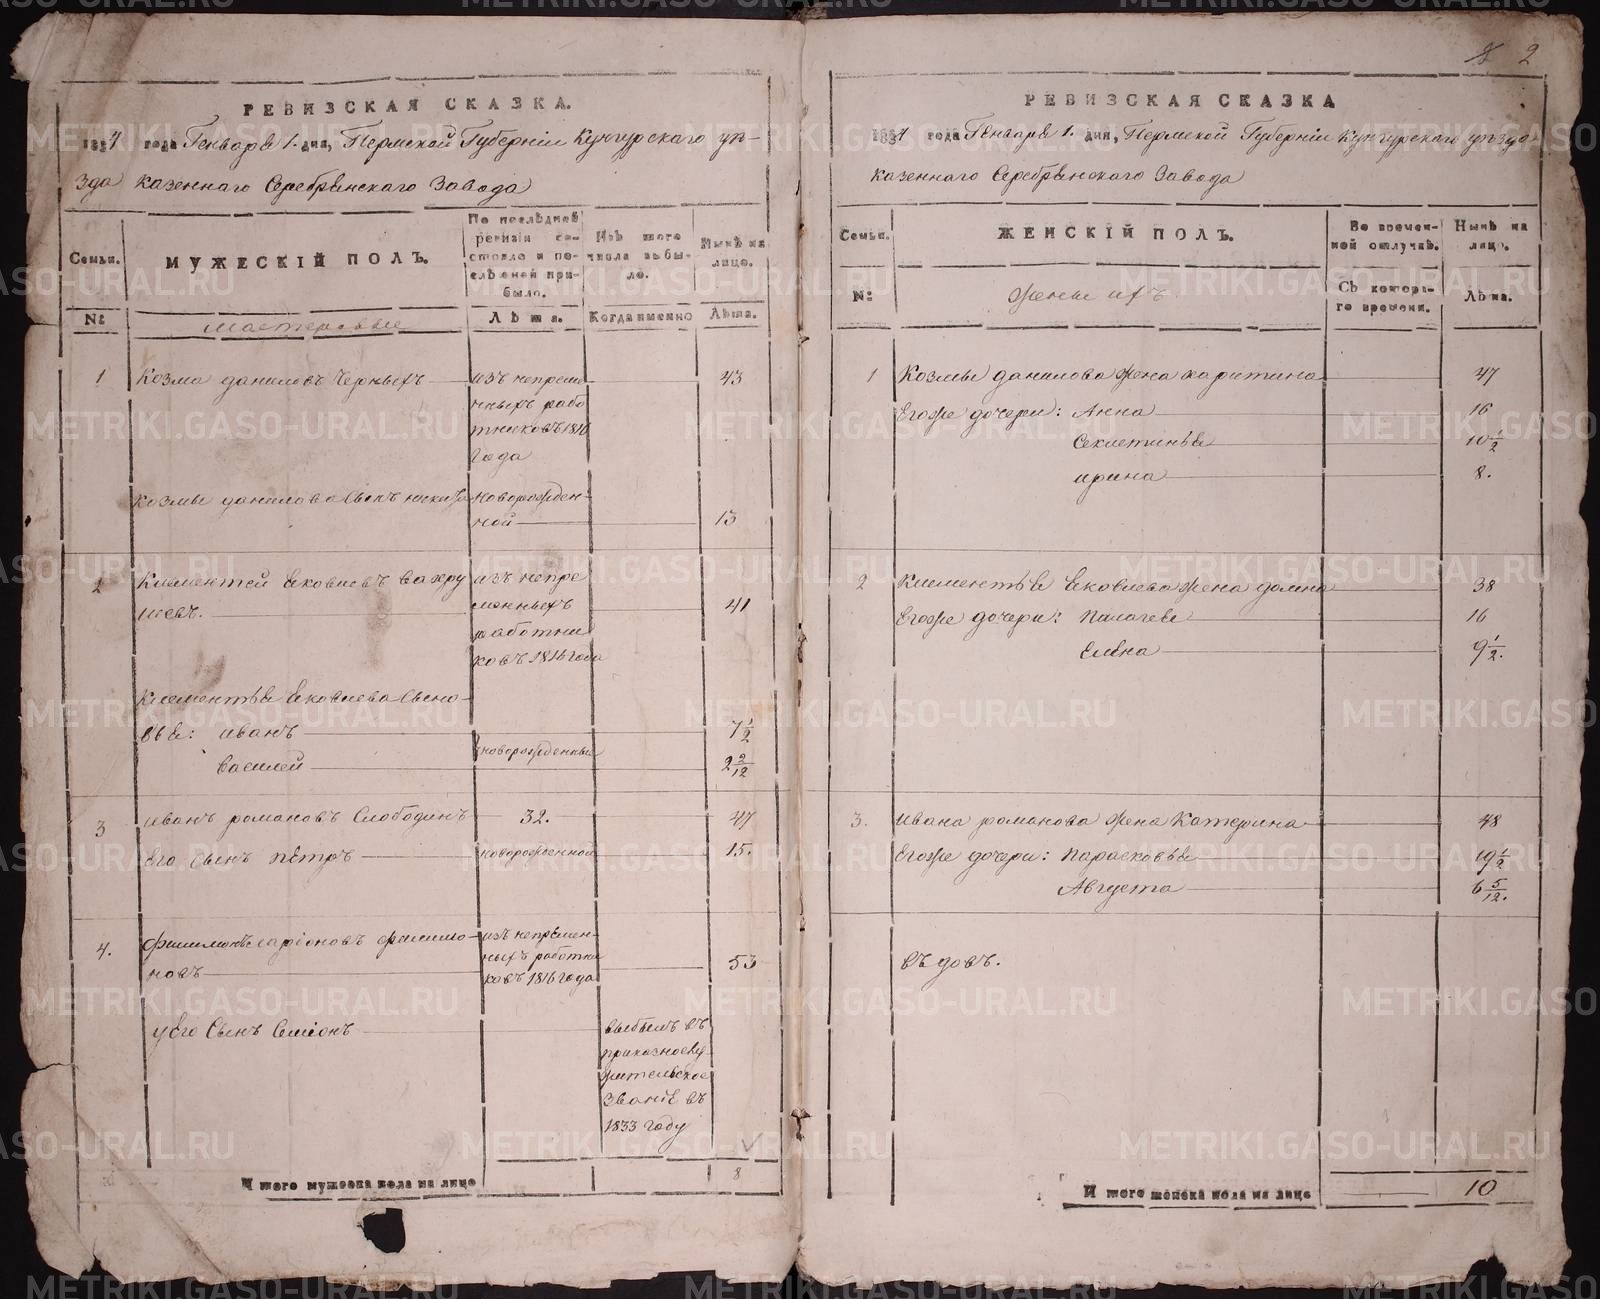 2
РЕВИЗСКАЯ СКАЗКА.
1834 года Генваря 1. дня, Пермской Губерніи Кунгурского уѣ-
зда казеннаго Серебрянскаго Завода
Семьи.
МУЖЕСКІЙ ПОЛЪ.
По послѣдней ревизіи состояло и послѣ оной прибыло.
Изъ того числа выбыло.
Нынѣ на лицо.
№:
Мастеровые
Лѣта.
Когда именно
Лѣта.
1 Козма даниловъ Черныхъ изъ непреме- 43
нныхъ рабо
тниковъ 1816
года
Козмы данилова Сынъ никита новорожден-
ной 13
2 Климентей Яковлевъ вахру изъ непре
шевъ. менныхъ 41
работни
ковъ 1816 года
Климентья Яковлева Сыно-
вья: иванъ 7 1/2
новорожденныя
василей 2 2/12
3 иванъ романовъ Слободинъ 32. 47
Его Сынъ петръ новорожденной 15.
4. филимонъ ларіоновъ филимо- изъ непремен-
новъ ныхъ работни 53
ковъ 1816 года
у его Сынъ Семіонъ выбылъ въ
приказнослу-
жительское
званіе въ
1833 году
Итого мужеска пола на лицо 8
РЕВИЗСКАЯ СКАЗКА
1834 года Генваря 1. дня, Пермской Губерніи Кунгурскаго уѣзда
казеннаго Серебрянского Завода
Семьи.
ЖЕНСКІЙ ПОЛЪ.
Во временной отлучкѣ.
Нынѣ на лицо.
№:
жены ихъ
Съ котораго времени.
Лѣта.
1 Козмы данилова жена харитина 47
Егоже дочери: Анна 16
Секлетинья 10 1/2
ирина 8.
2 Климентья Яковлева жена домна 38
Егоже дочери: Пилагея 16
Елена 9 1/2.
3. ивана романова жена Катерина 48
Егоже дочери: Парасковья 19 1/2
Августа 6 5/12.
вдовъ.
Итого женска пола на лицо 10
METRIKI.GASO-URAL.RU